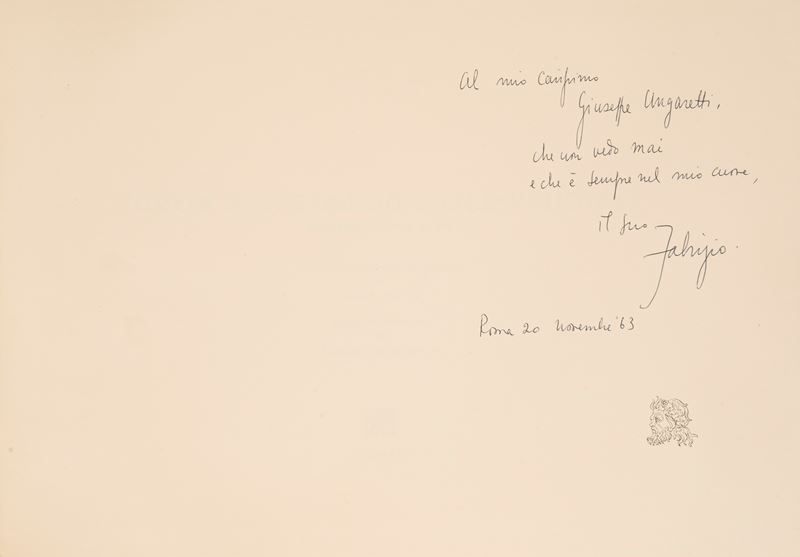 Al mio carissimo
Giuseppe Ungaretti,
che non vedo mai
e che è sempre nel mio cuore,
il suo
Fabrizio.
Roma 20 novembre '63